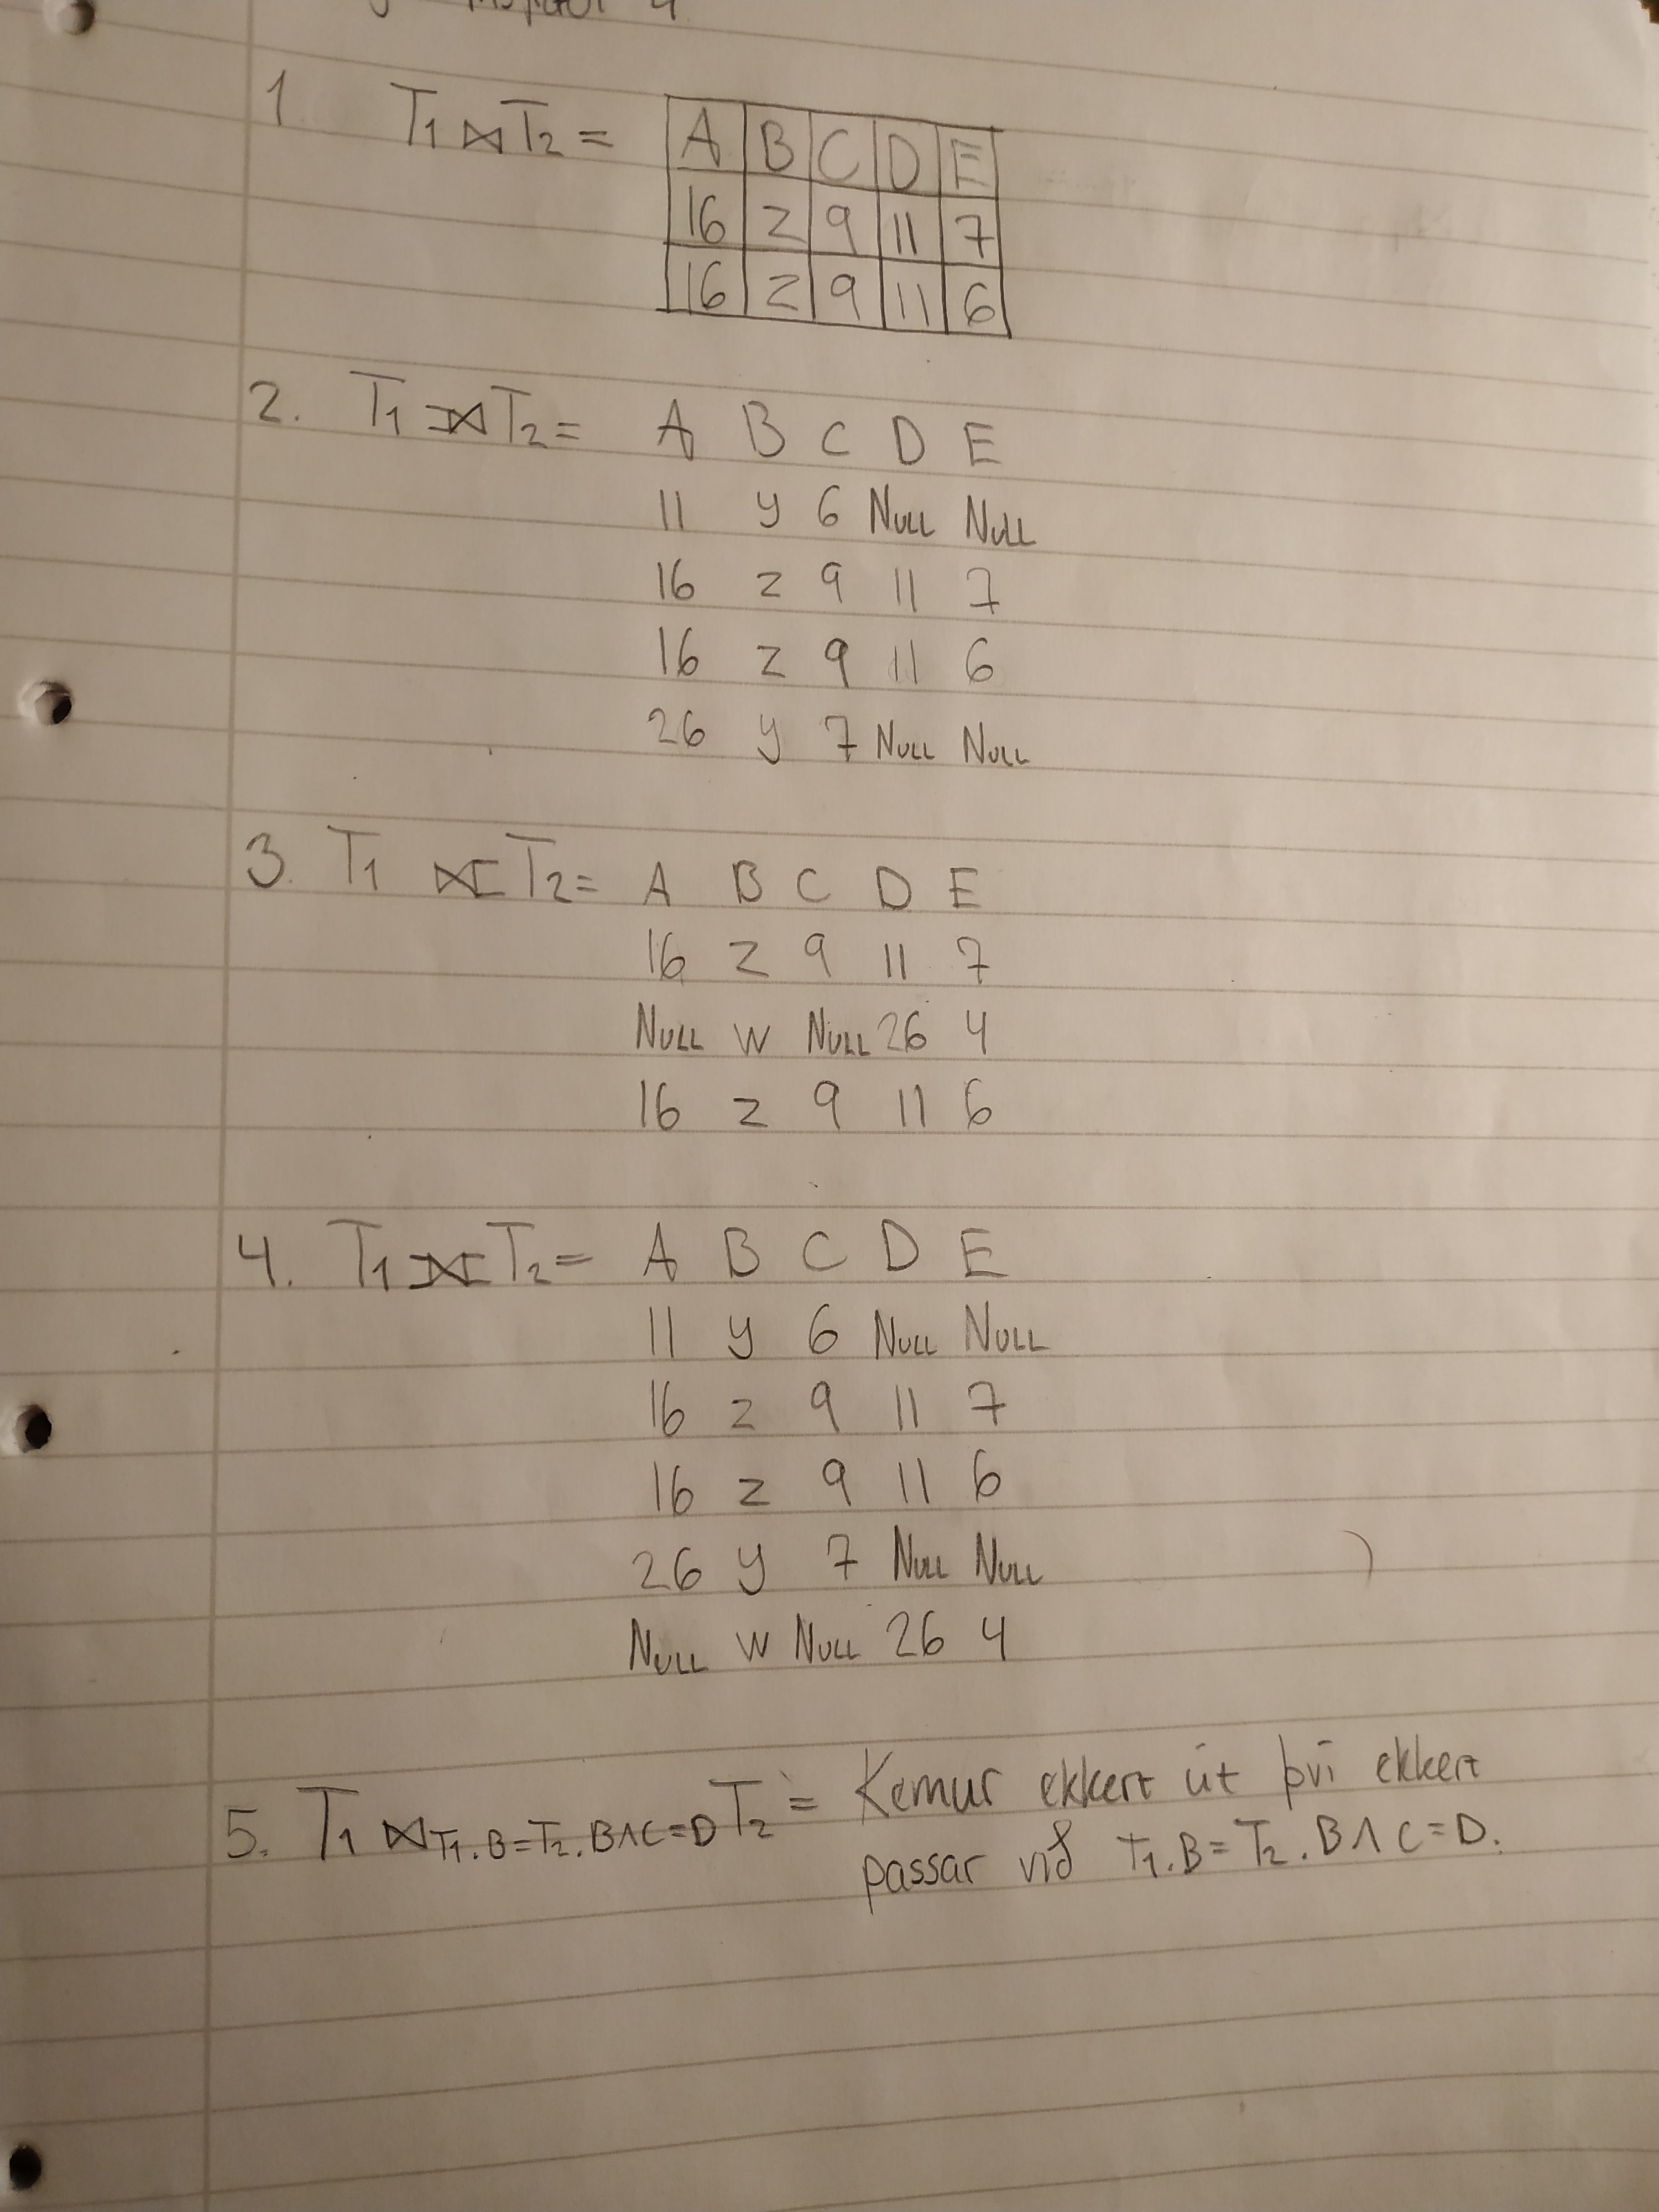 4
1 T₁ ⋈ T₂ = A B C D E
16 z 9 11 7
16 z 9 11 6
2. T₁ ⟕ T₂ = A B C D E
11 y 6 NULL NULL
16 z 9 11 7
16 z 9 11 6
26 y 7 NULL NULL
3. T₁ ⟖ T₂ = A B C D E
16 z 9 11 7
NULL W NULL 26 4
16 z 9 11 6
4. T₁ ⟗ T₂ = A B C D E
11 y 6 NULL NULL
16 z 9 11 7
16 z 9 11 6
26 y 7 NULL NULL
NULL W NULL 26 4
5. T₁ ⋈ T₁.B=T₂.B∧C=D T₂ = Kemur ekkert út því ekkert
passar við T₁.B = T₂.B ∧ C = D.